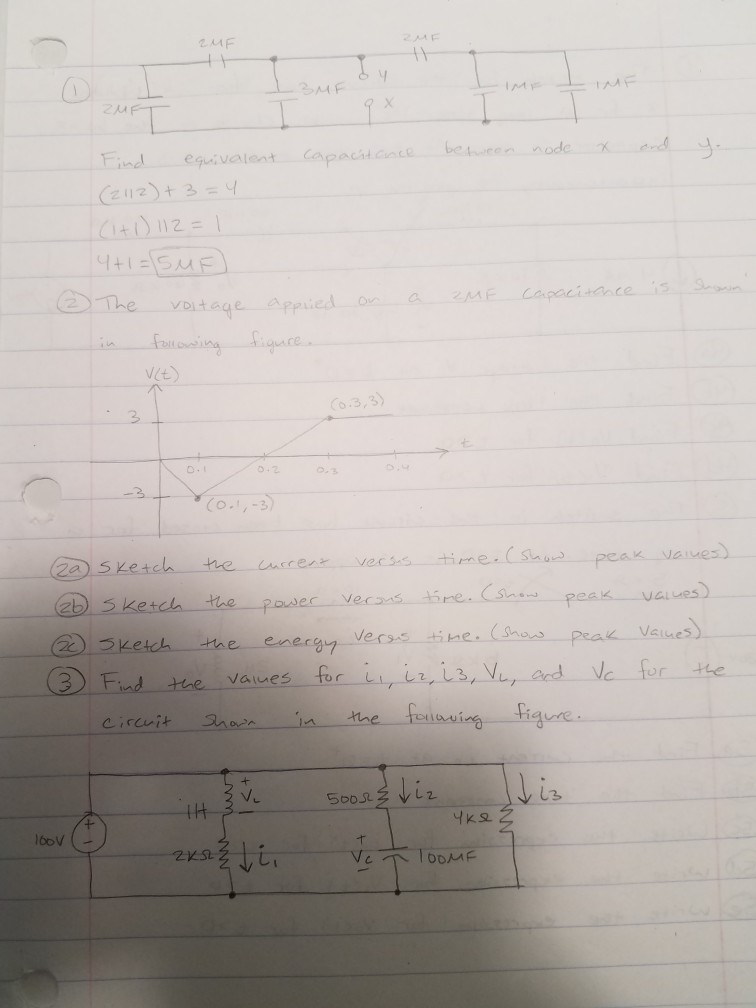 2MF 2MF
① 2MF 3MF y x 1MF 1MF
Find equivalent capacitance between node x and y.
(2||2) + 3 = 4
(1+1) ||2 = 1
4+1 = 5MF
② The voltage applied on a 2MF capacitance is shown
in following figure.
V(t)
3 (0.3,3)
0.1 0.2 0.3 0.4 t
-3 (0.1,-3)
2a) Sketch the current versus time. (Show peak values)
2b) Sketch the power versus time. (show peak values)
2c) Sketch the energy versus time. (show peak values)
③ Find the values for i1, i2, i3, VL, and Vc for the
circuit shown in the following figure.
100V + - 1H + VL - 500Ω ↓i2 4KΩ ↓i3
2KΩ ↓i1 + Vc - 100MF